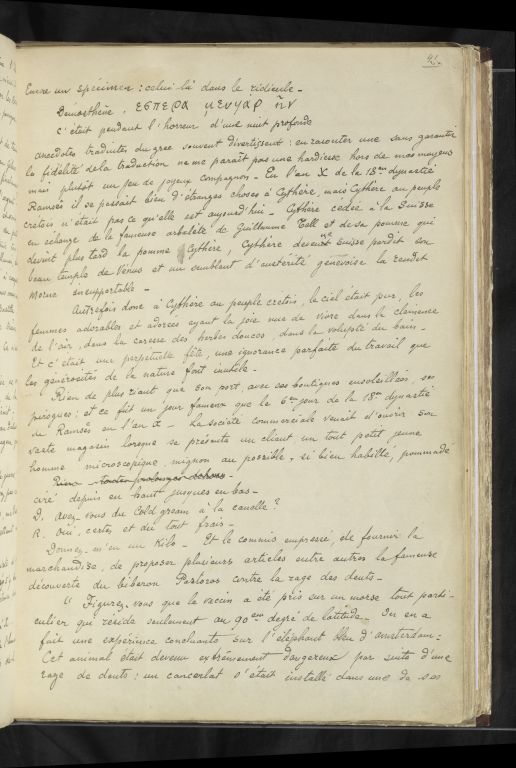 42.
Encore un spécimen : celui-là dans le ridicule -
Démosthène . ΕСΠΕΡΑ μενγαρ ῆν
C'était pendant l'horreur d'une nuit profonde
anecdotes traduites du grec souvent divertissent : en raconter une sans garantir
la fidélité de la traduction ne me paraît pas une hardiesse hors de mes moyens
mais plutôt un jeu de joyeux compagnon - En l'an X de la 18eme dynastie
Ramsès il se passait bien d'étranges choses à Cythère, mais Cythère au peuple
cretois n'était pas ce qu'elle est aujourd'hui - Cythère cédée à la Suisse
en échange de la fameuse arbalète de Guillaume Tell et de sa pomme qui
devint plus tard la pomme Cythère, Cythère devenue Suisse perdit son
beau temple de Vénus et un semblant d'austérité génevoise la rendit
morne insupportable -
Autrefois donc à Cythère au peuple cretois, le ciel était pur, les
femmes adorables et adorées ayant la joie nue de vivre dans la clémence
de l'air, dans la caresse des herbes douces, dans la volupté du bain -
Et c'était une perpétuelle fête, une ignorance parfaite du travail que
les générosités de la nature font inutile -
Rien de plus riant que son port, avec ses boutiques ensoleillées, ses
pirogues : et ce fut un jour fameux que le 6eme jour de la 18eme dynastie
de Ramsès en l'an X - La société commerciale venait d'ouvrir son
vaste magasin lorsque se présenta un client, un tout petit jeune
homme microscopique, mignon au possible, si bien habillé, pommadé
ciré depuis en haut jusques en bas -
D. Avez-vous du Cold gream à la canelle ?
R. Oui, certes et du tout frais -
Donnez m'en un Kilo - Et le commis empressé, de fournir la
marchandise, de proposer plusieurs articles entre autres la fameuse
découverte du biberon contre la rage des dents -
" Figurez-vous que le vaccin a été pris sur un morse tout parti-
culier qui réside seulement au 90em degré de latitude. On en a
fait une expérience concluante sur l'éléphant bleu d'Amsterdam :
Cet animal était devenu extrêmement dangereux par suite d'une
rage de dents : un cancerlat s'était installé dans une de ses